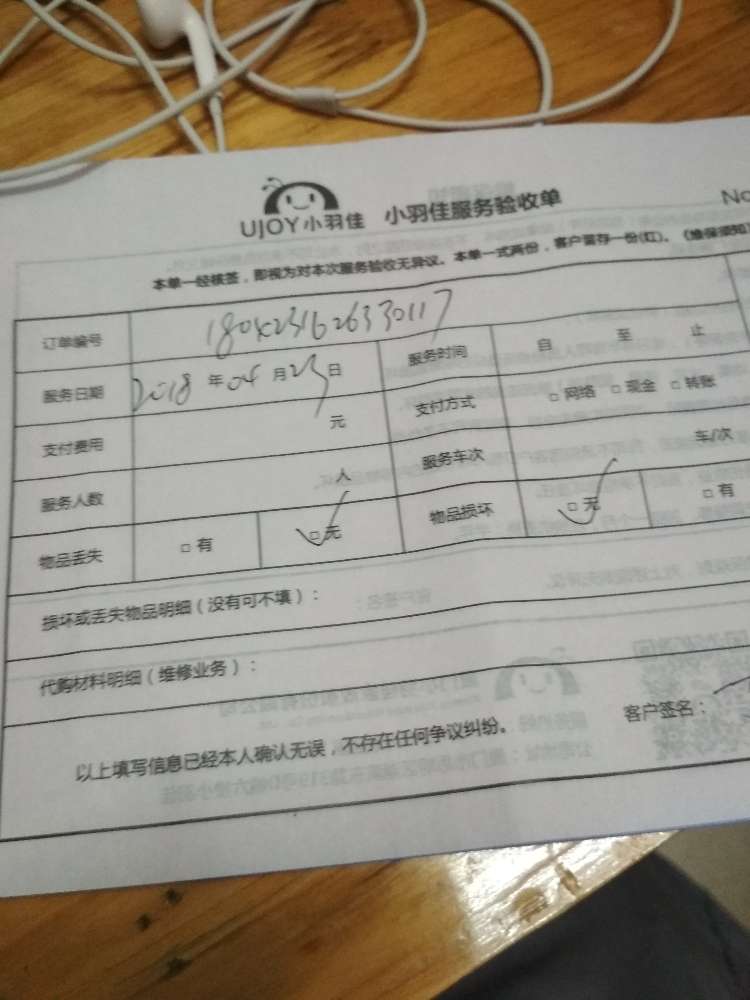 UJOY小羽佳 小羽佳服务验收单 No
本单一经核签，即视为对本次服务验收无异议。本单一式两份，客户留存一份(红)。《维保须知》
订单编号 1804231626330117
服务日期 2018 年 04 月 23 日 服务时间 自 至 止
支付费用 元 支付方式 □ 网络 □ 现金 □ 转账
服务人数 人 服务车次 车/次
物品丢失 □ 有 □ 无 物品损坏 □ 无 □ 有
损坏或丢失物品明细（没有可不填）：
代购材料明细（维修业务）：
以上填写信息已经本人确认无误，不存在任何争议纠纷。 客户签名：